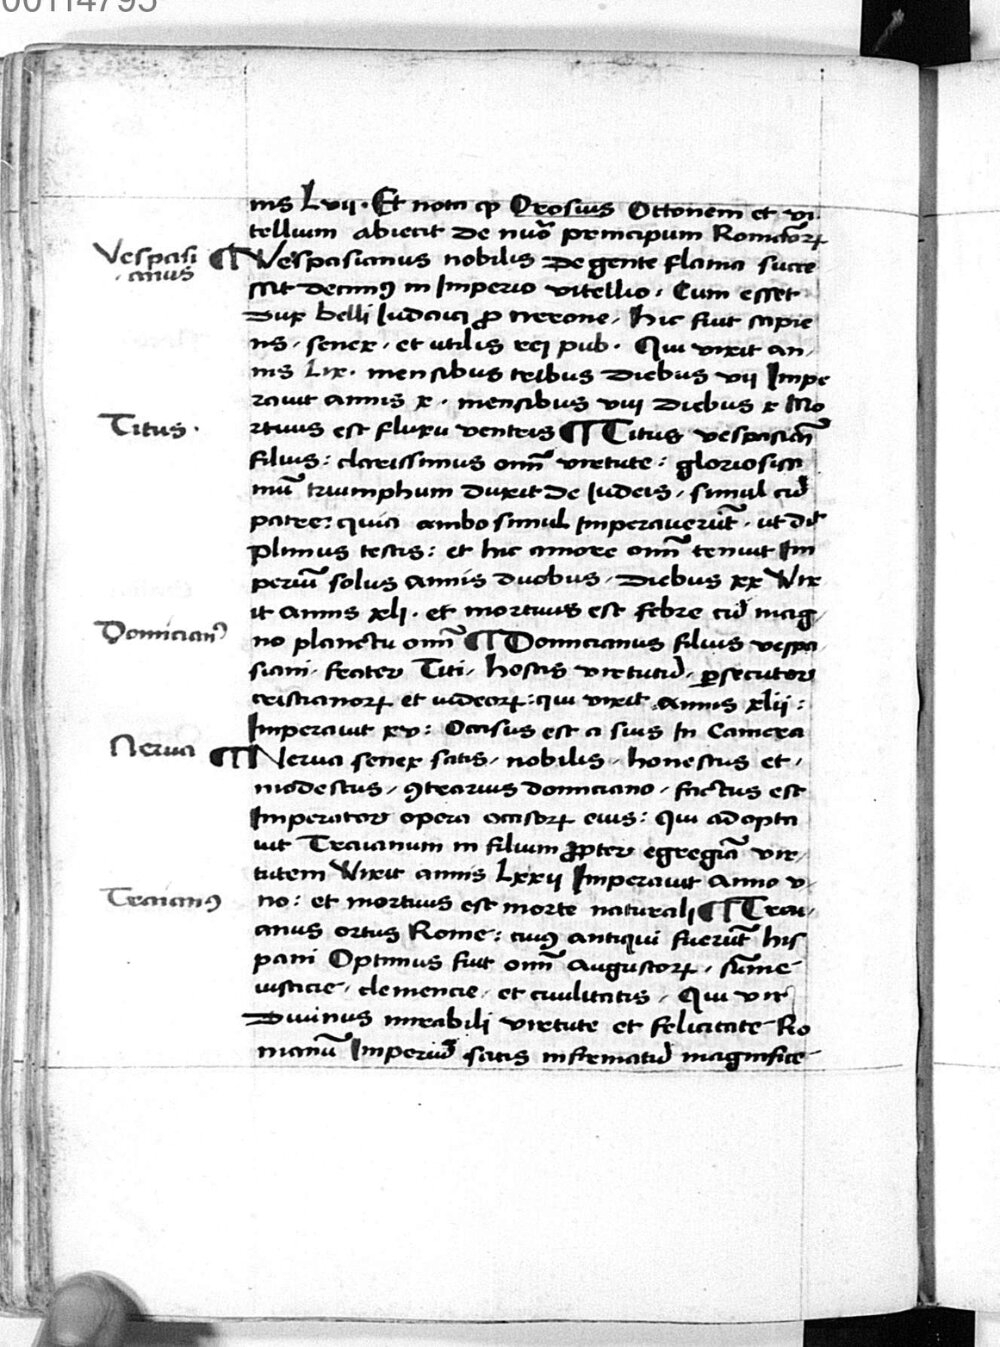 00114795
nis Lvii. Et nota qͥ Orosius Ottonem et vi
tellium abiecit de nuō principum Romāoꝝ
Vespasi
anus
¶ Vespasianus nobilis de gente flamia succe
ssit decimꝰ in Imperio vitellio. Cum esset
dux belli Iudaici ꝓ nerone, hic fuit sapie
ns, senex, et utilis rei pub. Qui vixit an,
nis Lix. mensibus tribus diebus vii Impe
rauit annis x. mensibus viii diebus x Mo
Titus.
rtuus est fluxu ventris ¶ Titus vespasian̄
filius: clarissimus omn̄ virtute: gloriosissi
mū triumphum duxit de Iudeis, simul cū
patre: quia ambo simul Imperauerūt. ut dīt
Plinius testis: et hic amore omn̄ tenuit Im
periū solus annis duobus, diebus xx Vix
it annis xli. et mortuus est febre cū mag,
Domicianꝰ
no planctu omn̄ ¶ Domicianus filius vespa,
siani, frater Titi, hostis virtutū, ꝑsecutor
cristianoꝝ et iudeoꝝ: qui vixit annis xlii:
Imperauit xv: Occisus est a suis In Camera
Nerua
¶ Nerua senex satis, nobilis, honestus et,
modestus, ꝯtrarius domiciano, factus est
Imperator opera occisoꝝ eius: Qui adopta
uit Traianum in filium ꝓpter egregiā vir,
tutem Vixit annis Lxxii Imperauit Anno v,
Traianꝰ
no: et mortuus est morte naturali ¶ Trai,
anus ortus Rome: cuiꝰ antiqui fuerūt his
pani Optimus fuit omn̄ Augustoꝝ, sūme
iusticie, clemencie, et ciuilitatis, Qui vir
Diuinus mirabili virtute et felicitate Ro
manū Imperiū satis infirmatū magnifice